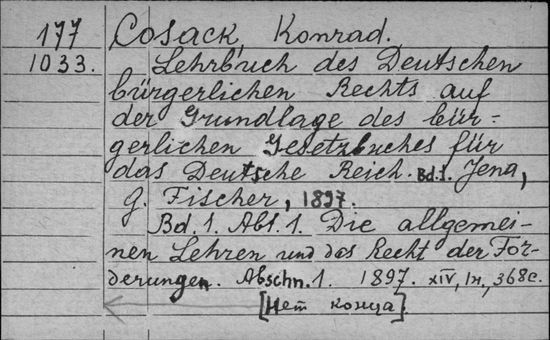 177 Cosack, Konrad.
1033. Lehrbuch des Deutschen
bürgerlichen Rechts auf
der Grundlage des bür-
gerlichen Gesetzbuches für
das Deutsche Reich. Bd.1. Jena,
G. Fischer, 1897.
Bd. 1. Abt. 1. Die allgemei-
nen Lehren und das Recht der For-
derungen. Abschn. 1. 1897. XIV, 368c.
[Нет конца].